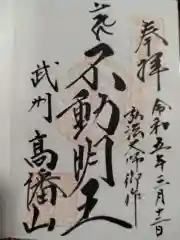 奉拝
令和五年二月十二日
弘法大師御作
不動明王
武州
高幡山